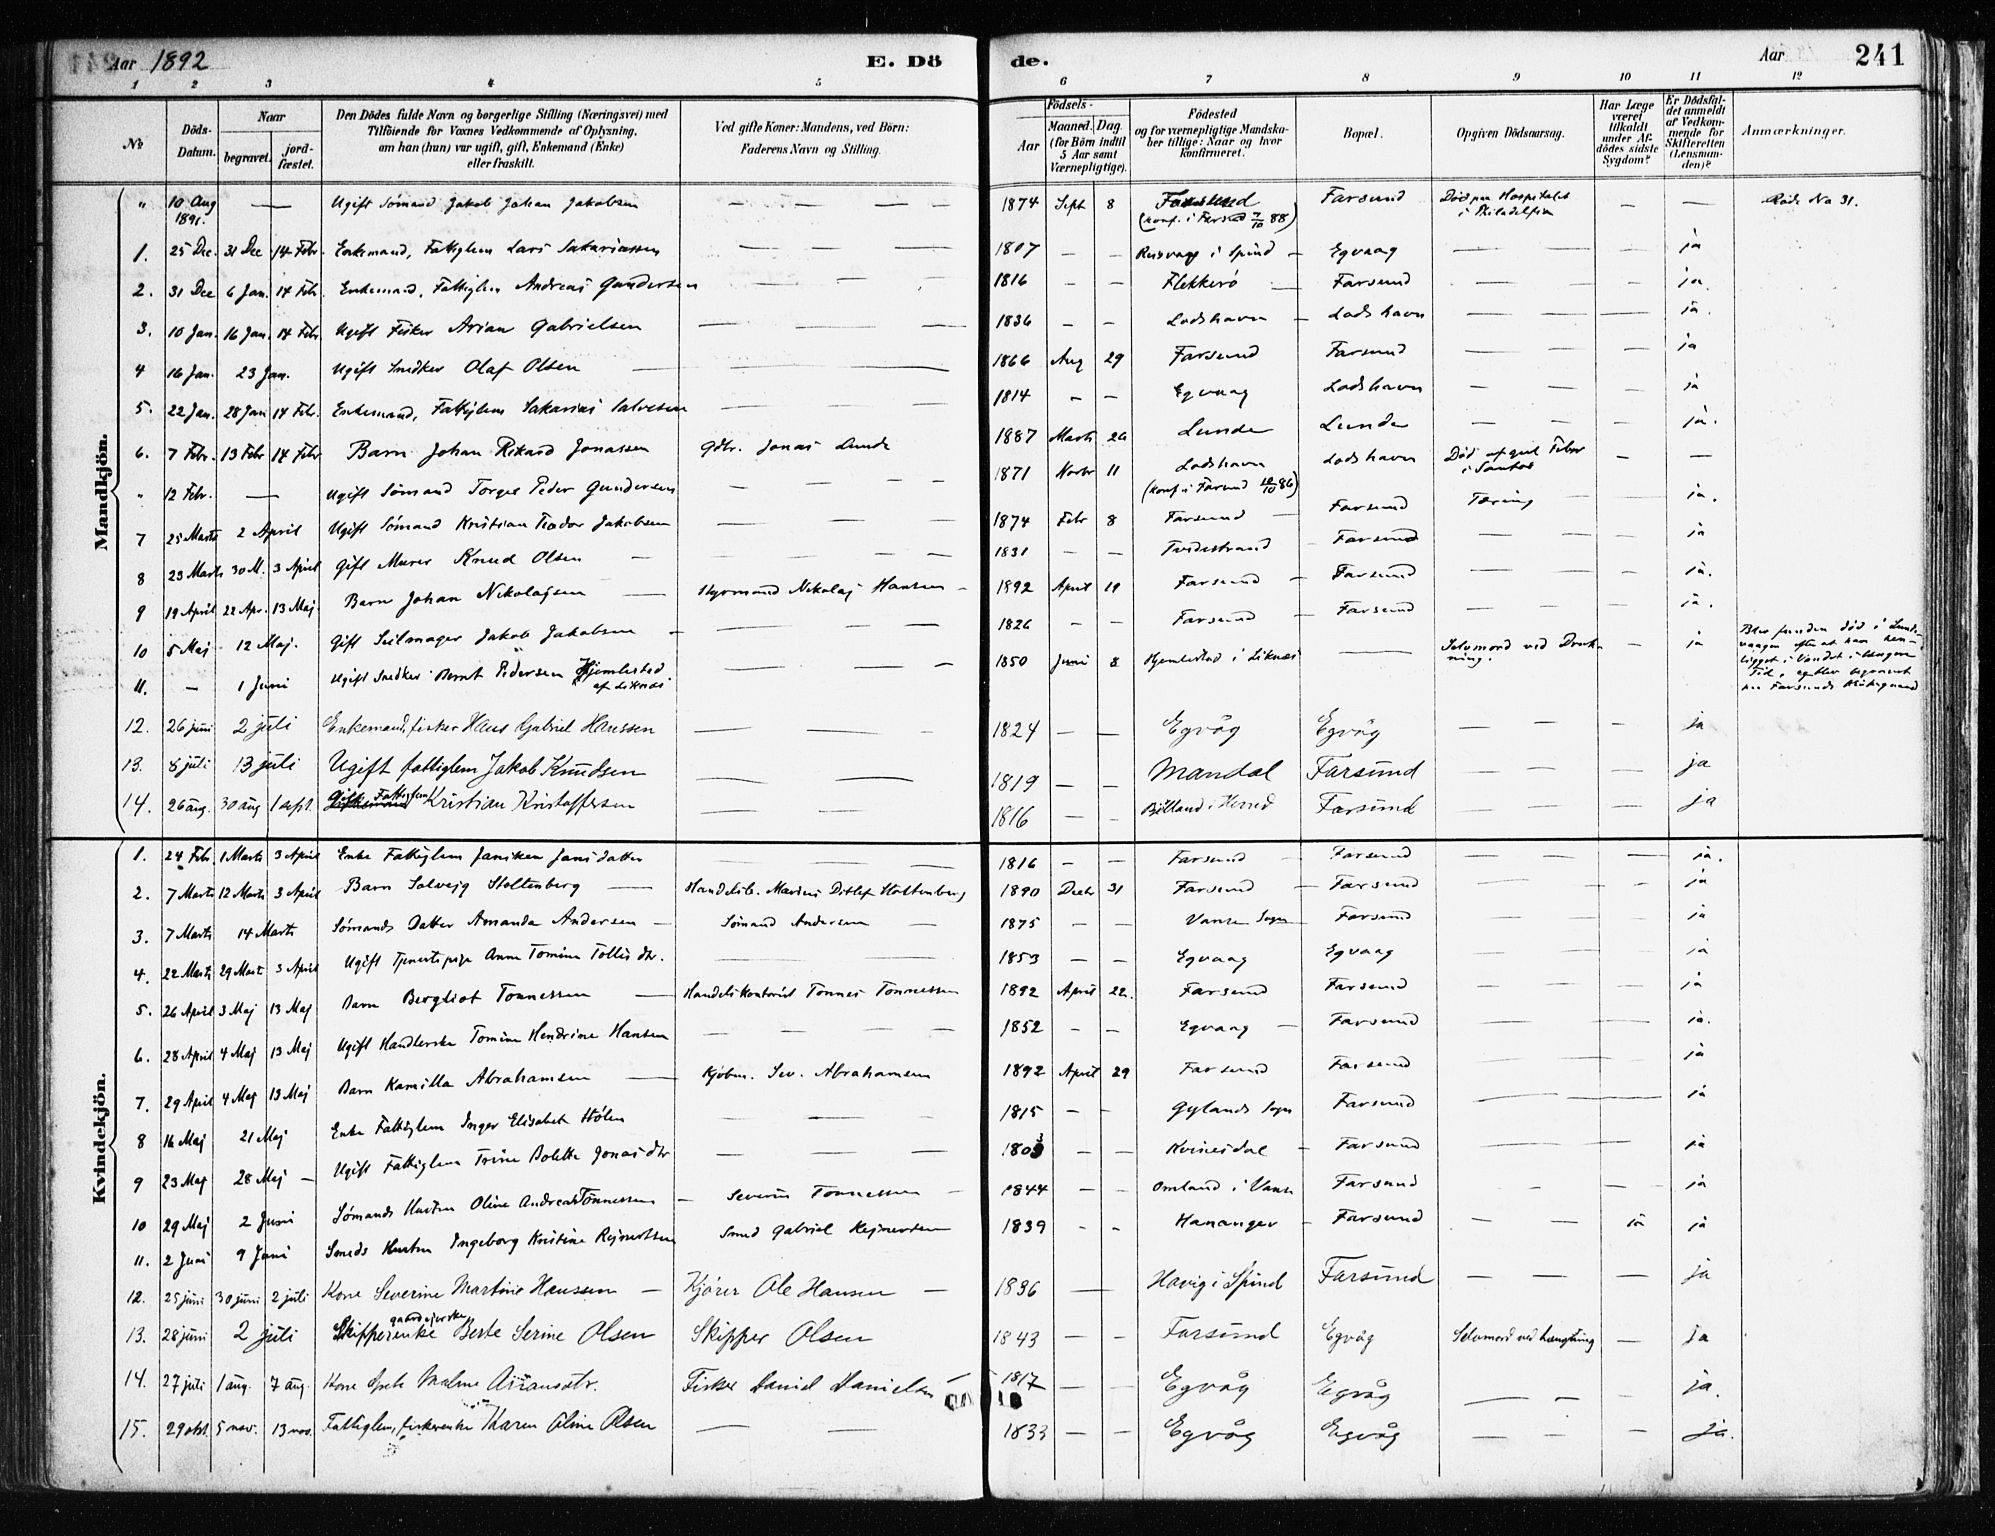 Aar 1892 E. Döde. Aar 241
1 2 3 4 5 6 7 8 9 10 11 12
No
Döds-Datum.
Naar
begravet.
jordfæstet.
Den Dödes fulde Navn og borgerlige Stilling (Næringsvei) med
Tilföiende for Voxnes Vedkommende af Oplysning,
om han (hun) var ugift, gift, Enkemand (Enke)
eller fraskilt.
Ved gifte Koner: Mandens, ved Börn:
Faderens Navn og Stilling.
Födsels-
Aar
Maaned. Dag.
(for Börn indtil
5 Aar samt
Værnepligtige).
Födested
og for værnepligtige Mandska-
ber tillige: Naar og hvor
konfirmeret.
Bopæl.
Opgiven Dödsaarsag.
Har Læge
været
tilkaldt
under Af-
dödes sidste
Sygdom?
Er Dödsfal-
det anmeldt
af Vedkom-
mende for
Skifteretten
(Lensman-
den)?
Anmærkninger.
Mandkjön.
" 10 Aug 1891. — Ugift Sømand Jakob Johan Jakobsen — — — 1874 Sept 8 Farsund (konf. i Farsund 7/10 88) Farsund Død paa Hospitalet i Philadelfia — — No 31.
1. 25 Dec. 31 Dec 14 Febr. Enkemand, Fattiglem Lars Sakariassen — — — 1807 — — i Spind — Egvaag — — — ja
2. 31 Dec 6 Jan. 14 Febr. Enkemand, Fattiglem Andreas Gundersen — — — 1816 — — Flekkerø — Farsund — — — ja.
3. 10 Jan. 16 Jan. 14 Febr Ugift Fisker Arian Gabrielsen — — — 1836 — — Loshavn — Loshavn — — — ja.
4 16 Jan. 23 Jan. Ugift Snedker Olaf Olsen — — — 1866 Aug 29 Farsund Farsund — — — ja
5. 22 Jan. 28 Jan 14 Febr. Enkemand, Fattiglem Sakarias Salvesen — — — 1814 — — Egvaag Loshavn — — — ja
6. 7 Febr. 13 Febr 14 Febr Barn Johan Rikard Jonassen Gdbr. Jonas Lunde 1887 Marts 26 Lunde Lunde — — — ja.
" 12 Febr. — Ugift Sømand Torger Peder Gundersen — — — 1871 Novbr 11 Loshavn (konf. i Farsund 10/10 86) Loshavn Død af gul Feber i Santos — —
7 25 Marts 2 April Ugift Sømand Kristian Teodor Jakobsen — — — 1874 Febr 8 Farsund — Farsund Tæring — — ja.
8 23 Marts 30 M. 3 April Gift Murer Knud Olsen — — — 1831 — — Tvedestrand — Farsund — — — ja
9 19 April 22 Apr. 13 Maj. Barn Johan Nikolajsen — Styrmand Nikolaj Hansen — 1892 April 19 Farsund — Farsund — — — ja.
10 5 Maj 12 Maj. Gift Seilmager Jakob Jakobsen — — — 1826 Farsund — Farsund — — — ja.
11. — 1 Juni Ugift Snedker Bernt Pedersen Hjemlestad af Liknes — — — 1850 Juni 8 Hjemlestad i Liknes — Selvmord ved Drukning. — ja Blev funden død i Lundevaagen efter at have henligget i Vandet i længere Tid, og blev begravet paa Farsunds Kirkegaard
12. 26 juni 2 juli Enkemand, fisker Hans Gabriel Hanssen — — 1824 — — Egvåg Egvåg — — — ja
13. 8 juli 13 juli Ugift fattiglem Jakob Knudsen — — 1819 — — Mandal Farsund — — — ja
14. 26 aug. 30 aug 1 sept. Gift Fattiglem Kristian Kristoffersen — — 1816 — — Farsund — — — ja
Kvindekjön.
1. 24 Febr. 1 Marts 3 April Enke Fattiglem Janiken Jansdatter — — — 1816 — — Farsund — Farsund — — — ja.
2. 7 Marts 12 Marts 3 April Barn Solvejg Stoltenberg — Handelsb. Marius Ditlef Stoltenberg 1890 Decbr 31 Farsund — Farsund — — — ja
3. 7 Marts 14 Marts Sømands Datter Amanda Andersen — Sømand Andersen — 1875 — — Vanse Sogn — Farsund — — — ja
4. 22 Marts 29 Marts 3 April Ugift Tjenestepige Anne Tomine Tollisdtr. — — — 1853 — — Egvaag Egvaag — — — ja
5. 26 April 3 Maj 13 Maj Barn Bergliot Tønnessen — Handelskontorist Tønnes Tønnessen 1892 April 22. Farsund Farsund — — — ja
6. 28 April 4 Maj 13 Maj Ugift Handlerske Tomine Hendrine Hansen — — — — 1852 — — Egvaag — Farsund — — — ja.
7. 29 April 4 Maj 13 Maj Barn Kamilla Abrahamsen — Kjøbm. Sev. Abrahamsen 1892 April 29 Farsund Farsund — — — ja
8 16 Maj 21 Maj Enke Fattiglem Inger Elisabet Stølen — — — 1815 — — Gylands Sogn Farsund — — — ja
9 23 Maj 28 Maj — Ugift Fattiglem Trine Bolette Jonasdtr — — — 1803 — — Kvinesdal — Farsund — — — ja
10 29 Maj 2 Juni Sømands Hustru Oline Andrea Tønnessen — Severin Tønnessen — 1844 — — Omland i Vanse Farsund — — — ja
11. 2 Juni 9 Juni Smeds Hustru Ingeborg Kristine Rejnertsen Smed Gabriel Rejnertsen 1839 — — Hananger — Farsund — — ja ja
12. 25 juni 30 juni 2 juli Kone Severine Martine Hanssen — Kjører Ole Hansen — 1836 — — Havig i Spind Farsund — — — ja
13. 28 juni 2 juli Skipperenke Berte Serine Olsen Skipper Olsen 1843 — — Farsund Egvåg Selvmord ved hængning — ja
14. 27 juli 1 aug. 7 aug. Kone Malene Ariansdtr. Fisker Daniel Danielsen — 1817 — — Egvåg Egvåg — — — ja.
15. 29 okt. 5 nov. 13 nov. Fattiglem, fiskerenke Karen Oline Olsen — — 1833 — — Egvåg Egvåg — — — ja.